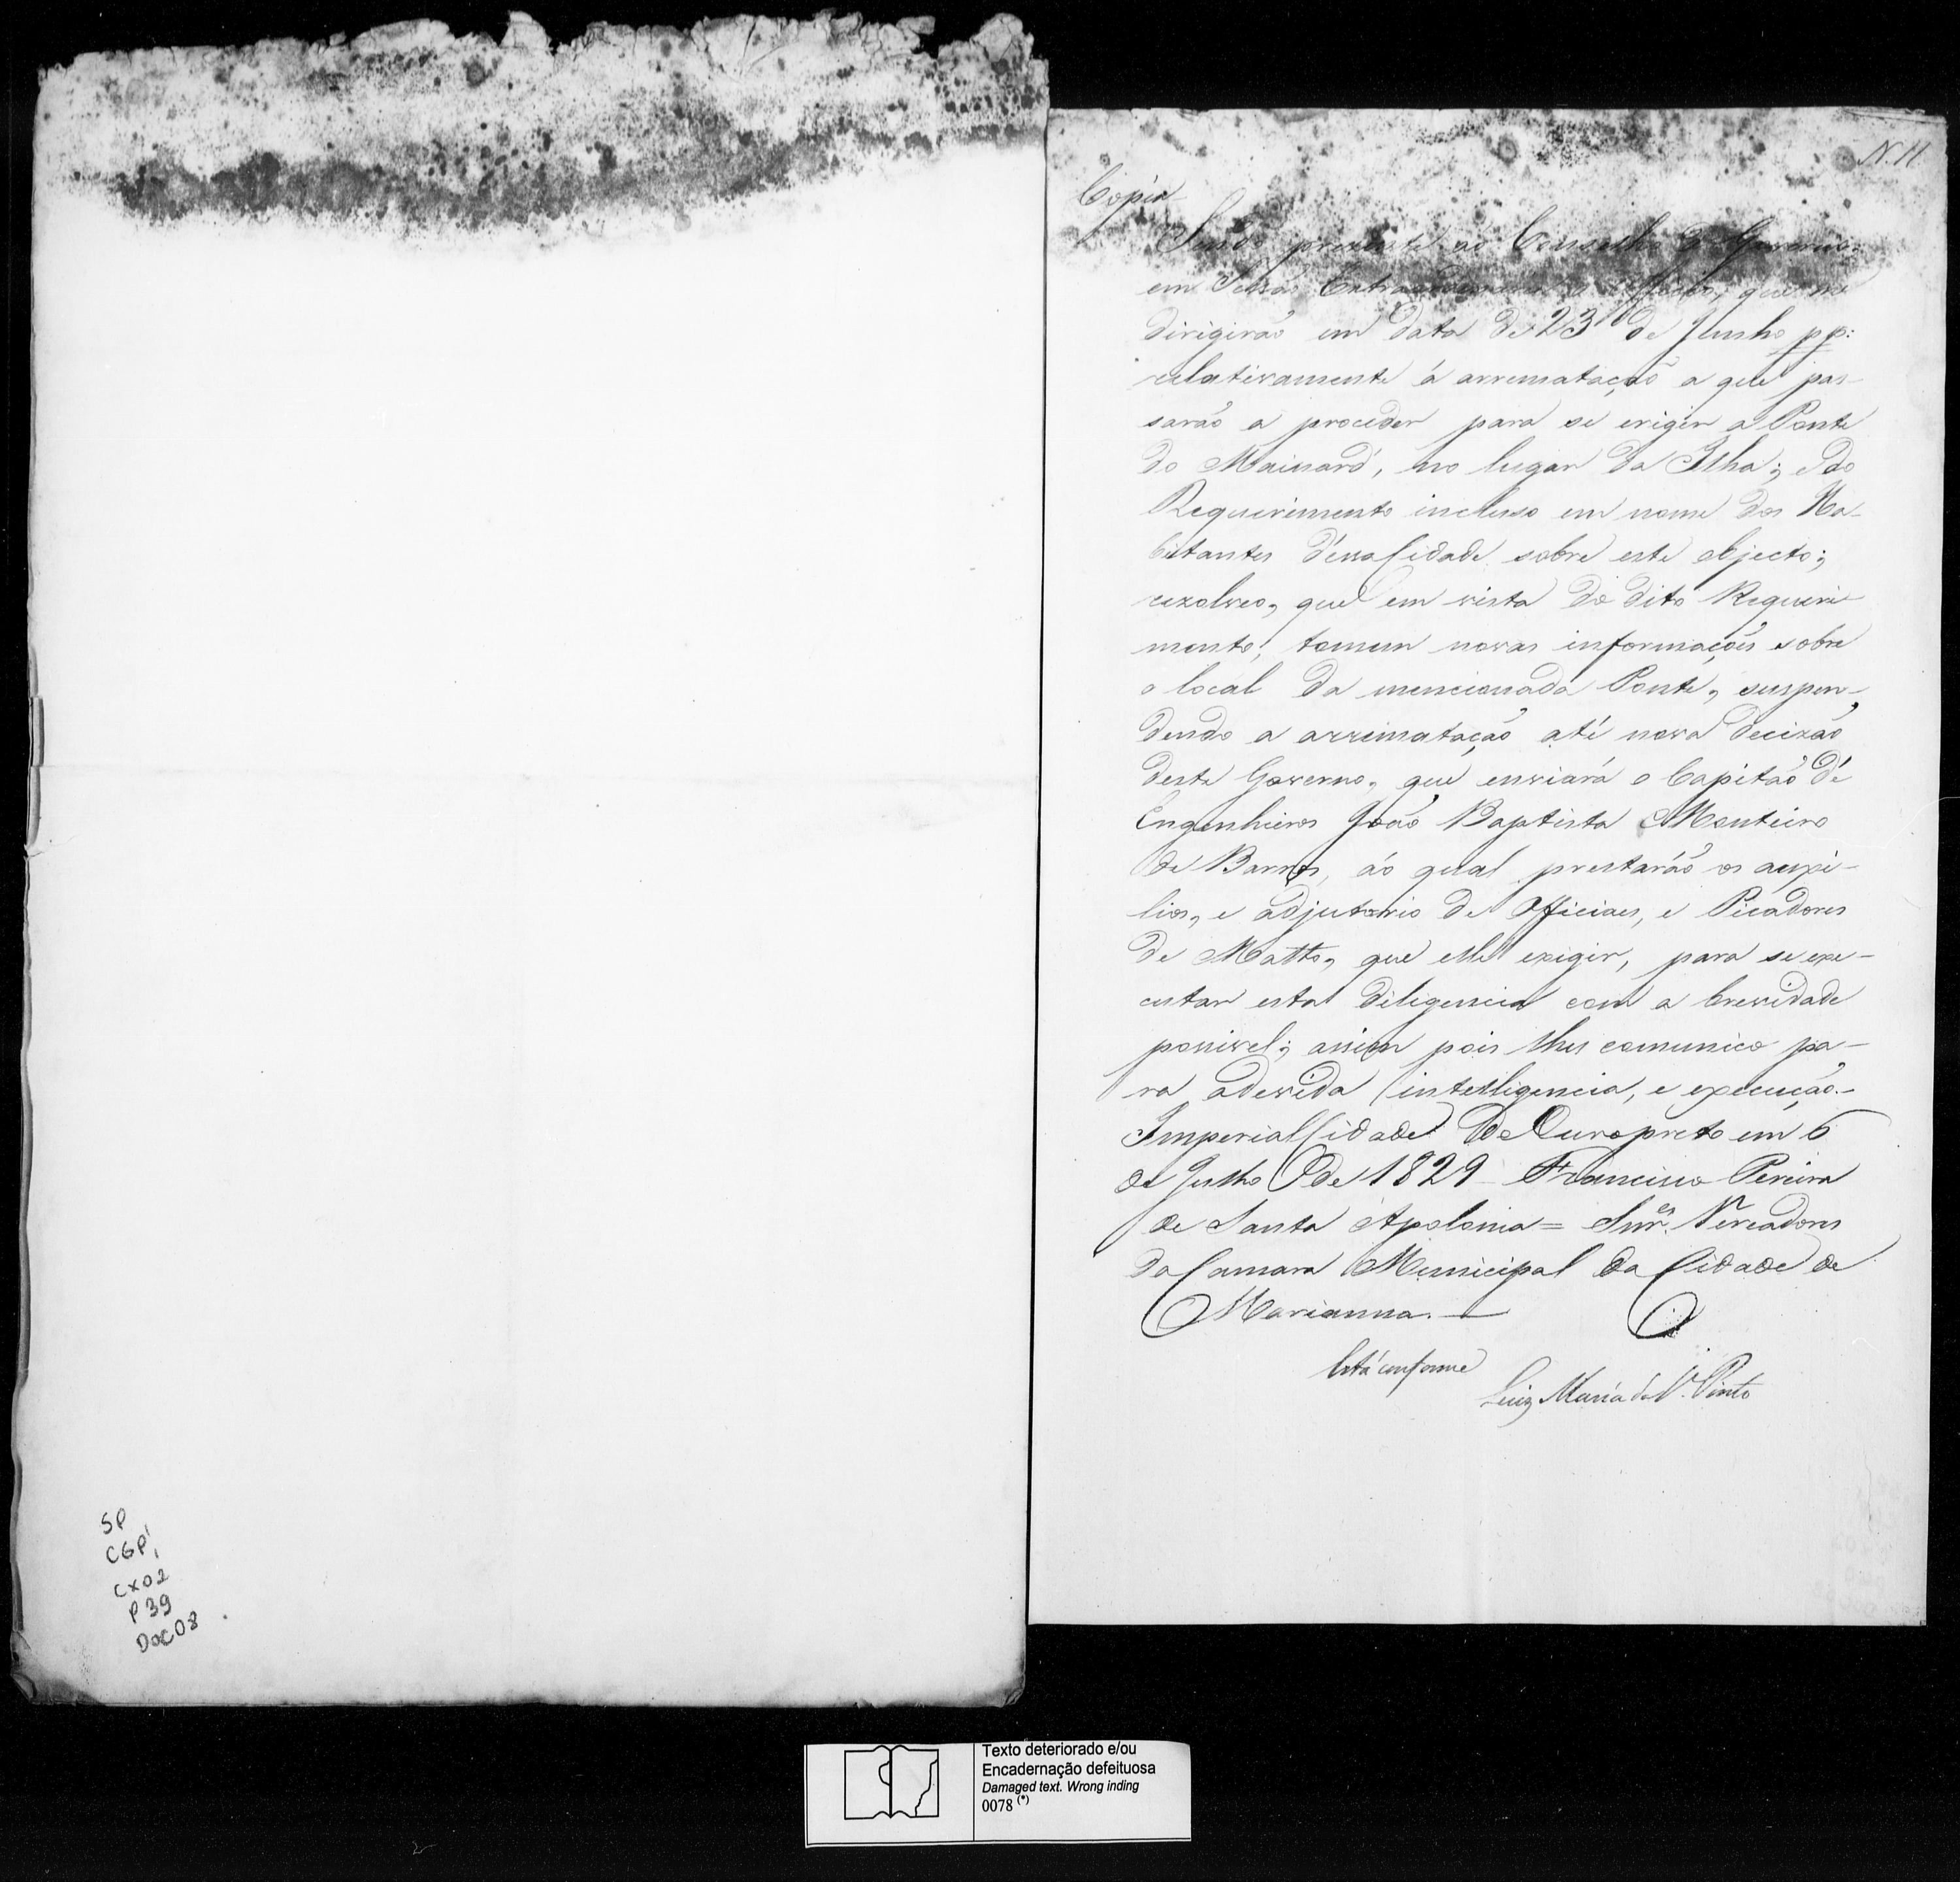 SP
CGP1
CX02
P39
DOC08
N. 11
Copia
Sendo presente ao Conselho do Governo
em Sessão Extraordinaria o Officio, que me
dirigirão em data de 23 de Junho pp:
relativamente á arrematação a que pas-
sarão a proceder para se erigir a Ponte
do Mainard, no lugar da Ilha; e do
Requerimento incluso em nome dos Ha-
bitantes dessa Cidade sobre este objecto;
rezolveo, que em vista do dito Requeri-
mento, tomem novas informações sobre
o local da mencionada Ponte, suspen-
dendo a arrematação até nova decizão
deste Governo, que enviará o Capitão de
Engenheiros João Baptista Monteiro
de Barros, ao qual prestarão os auxi-
lios, e adjutorio de Officiaes, e Picadores
de Matto, que elle exigir, para se exe-
cutar esta diligencia com a brevidade
possivel; assim pois lhes comunico pa-
ra a devida intelligencia, e execução.-
Imperial Cidade de Ouro preto em 6
de Julho de 1829 - Francisco Pereira
de Santa Apolonia = Snr.es Vereadores
da Camara Municipal da Cidade de
Marianna. —
Está conforme
Luiz Maria da S.ª Pinto
Texto deteriorado e/ou
Encadernação defeituosa
Damaged text. Wrong inding
0078 (*)